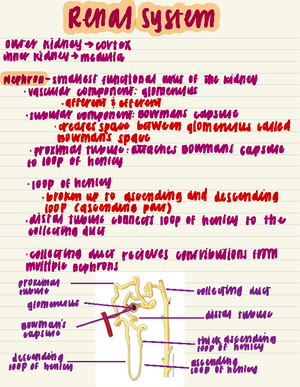 Renal System
outer kidney → cortex
inner kidney → medulla
Nephron - smallest functional unit of the kidney
· vascular component: glomerulus
· afferent & efferent
· tubular component: Bowmans capsule
· creates space between glomerulus called
Bowman's space
· proximal tubule: attaches Bowmans capsule
to loop of henley
· loop of henley
· broken up to ascending and descending
loop (ascending part)
· distal tubule connects loop of henley to the
collecting duct
· collecting duct recieves contributions from
multiple nephrons
proximal
tubule
glomerulus
Bowman's
capsule
descending
loop of henley
collecting duct
distal tubule
thick ascending
loop of henley
ascending
loop of henley